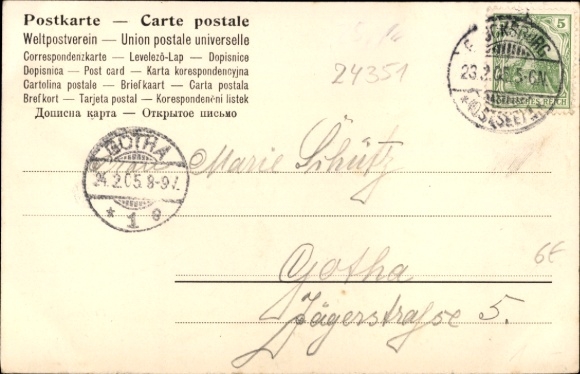 Postkarte — Carte postale
Weltpostverein — Union postale universelle
Correspondenzkarte — Levelező-Lap — Dopisnice
Dopisnica — Post card — Karta korespondencyjna
Cartolina postale — Briefkaart — Carta postala
Brefkort — Tarjeta postal — Korespondenční listek
Дописна карта — Открытое письмо
24351
5
23.2.05.5-6N.
*(OSTSEE)
REICH
GOTHA
24.2.05.8-9V.
* 1 e
Marie Schütz
Gotha
Jägerstraße 5.
6E